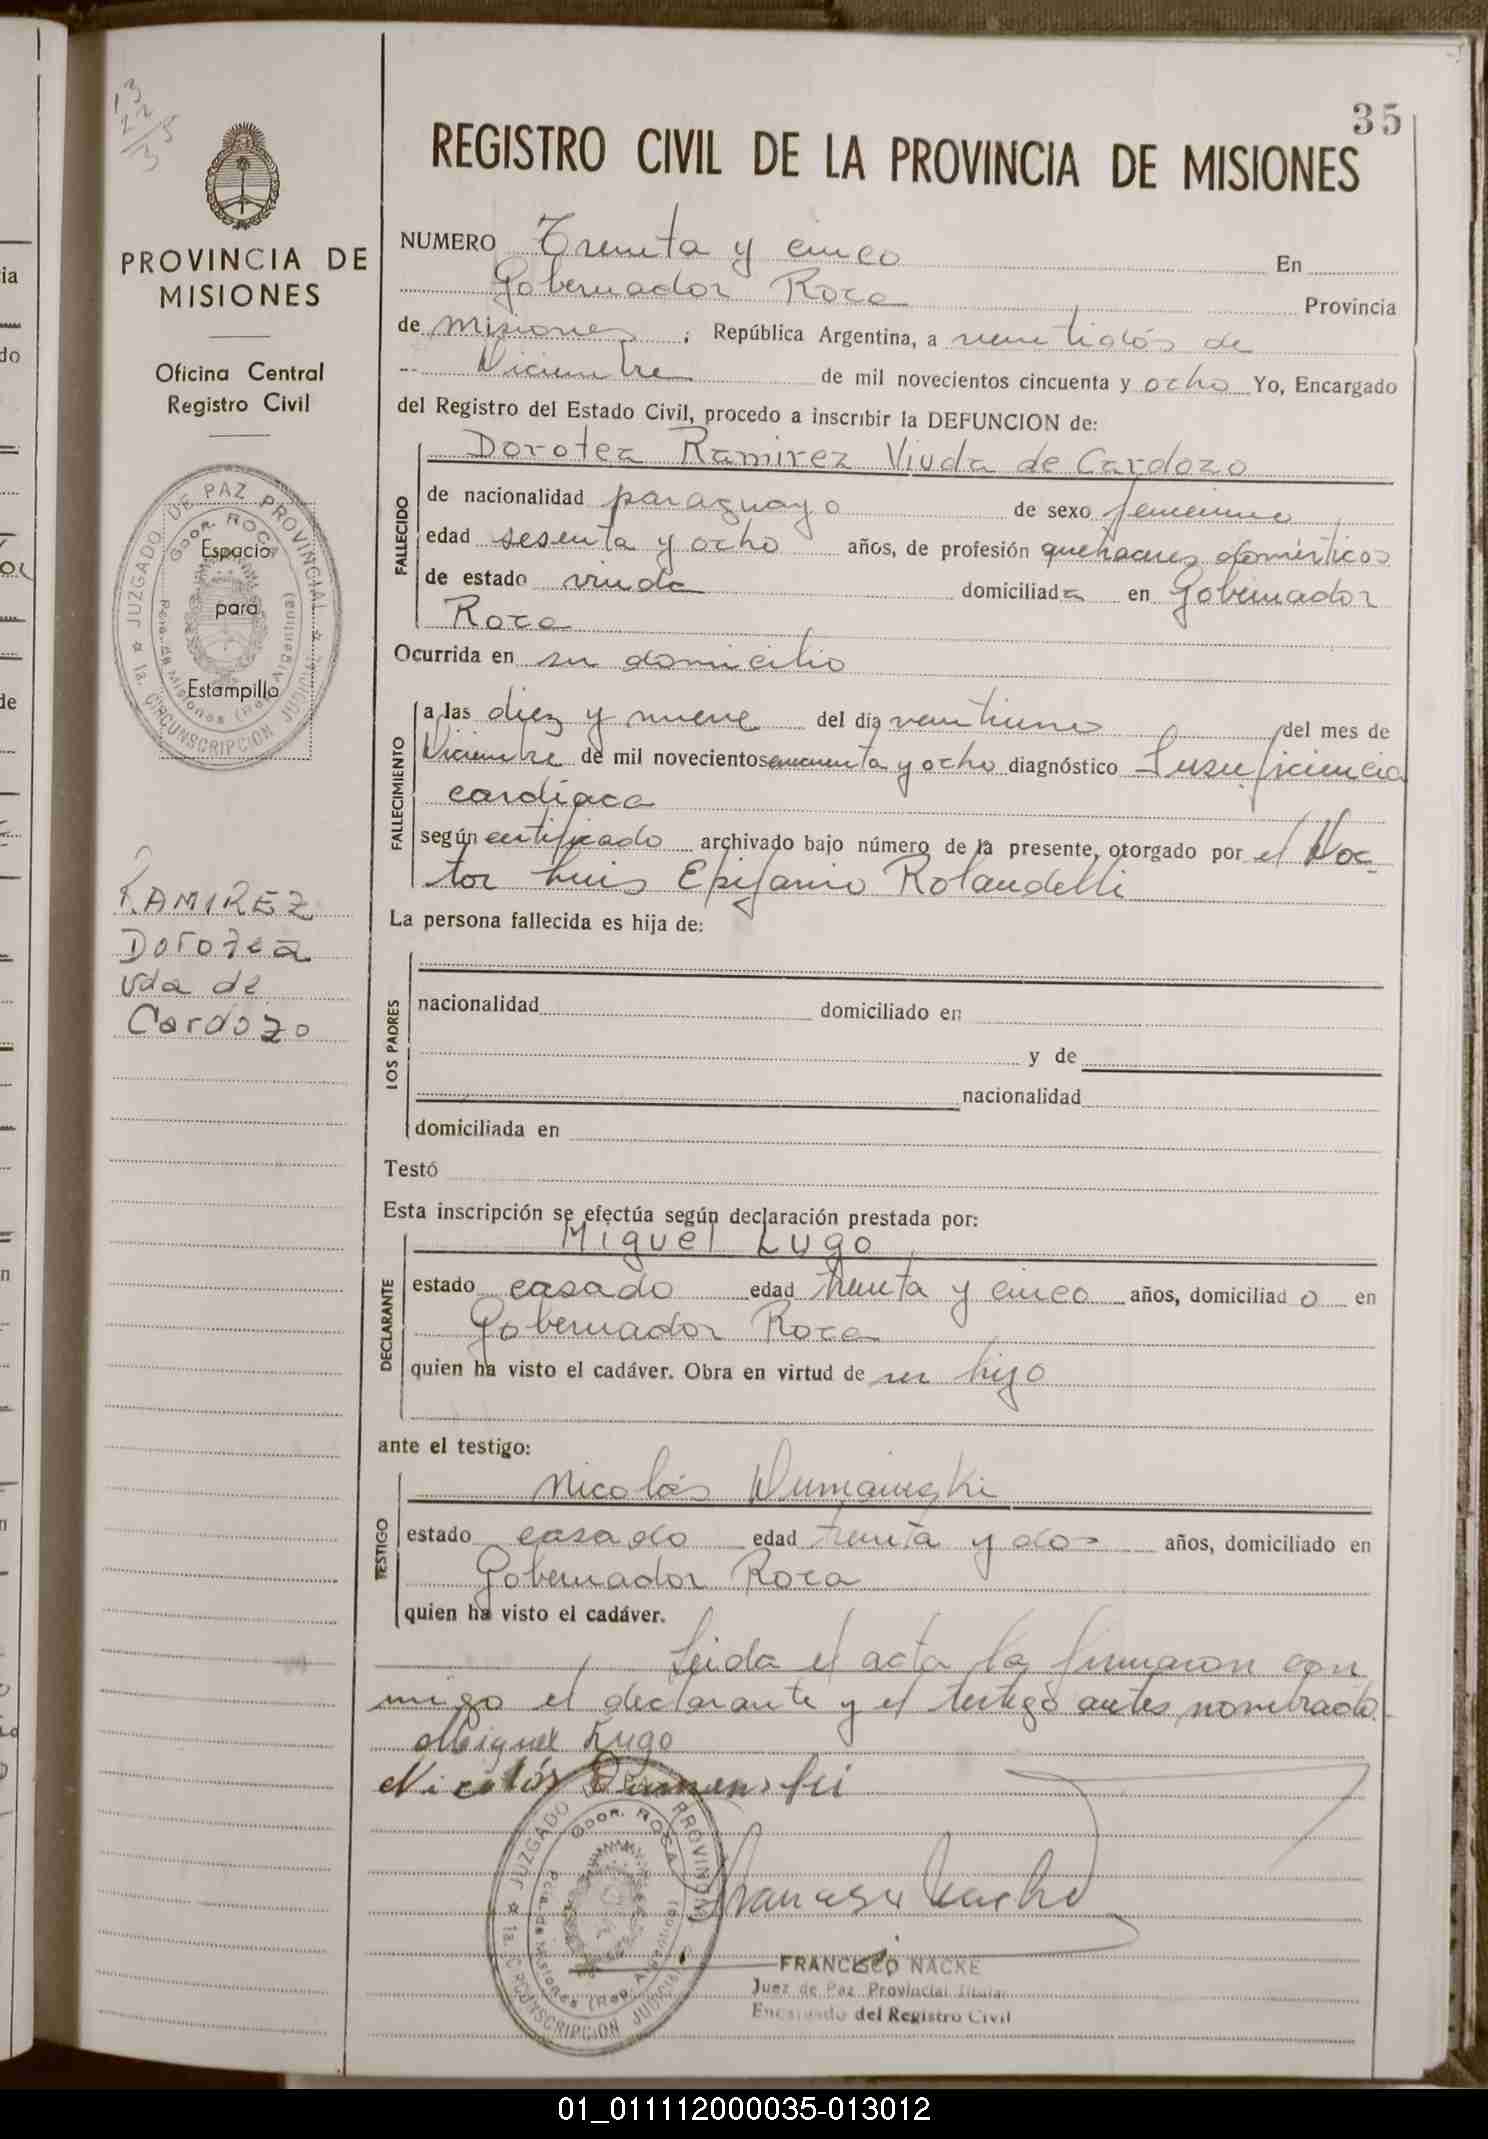 35
13
22
35
REGISTRO CIVIL DE LA PROVINCIA DE MISIONES
PROVINCIA DE
MISIONES
Oficina Central
Registro Civil
JUZGADO DE PAZ PROVINCIAL
Gdor. ROCA
Espacio
para
Estampilla
1a. CIRCUNSCRIPCION JUDICIAL
RAMIREZ
Dorotea
Vda de
Cardozo
NUMERO Treinta y cinco En
Gobernador Roca Provincia
de Misiones ; República Argentina, a veintidós de
Diciembre de mil novecientos cincuenta y ocho Yo, Encargado
del Registro del Estado Civil, procedo a inscribir la DEFUNCION de:
Dorotea Ramirez Viuda de Cardozo
FALLECIDO
de nacionalidad paraguaya de sexo femenino
edad sesenta y ocho años, de profesión quehaceres domésticos
de estado viuda domiciliada en Gobernador
Roca
Ocurrida en su domicilio
FALLECIMIENTO
a las diez y nueve del día veintiuno del mes de
Diciembre de mil novecientos cincuenta y ocho diagnóstico Insuficiencia
cardíaca
según certificado archivado bajo número de la presente, otorgado por el Doc-
tor Luis Epifanio Rolandelli
La persona fallecida es hija de:
LOS PADRES
nacionalidad domiciliado en
y de
nacionalidad
domiciliada en
Testó
Esta inscripción se efectúa según declaración prestada por:
Miguel Lugo
DECLARANTE
estado casado edad treinta y cinco años, domiciliado en
Gobernador Roca
quien ha visto el cadáver. Obra en virtud de ser hijo
ante el testigo:
Nicolás Dumaineski
TESTIGO
estado casado edad treinta y dos años, domiciliado en
Gobernador Roca
quien ha visto el cadáver.
Leida el acta la firmaron con
migo el declarante y el testigo antes nombrado.
Miguel Lugo
Nicolás
JUZGADO PROVINCIAL
Gdor. ROCA
Pcia. de Misiones (Rep. Argentina)
1a. CIRCUNSCRIPCION JUDICIAL
FRANCISCO NACKE
Juez de Paz Provincial Titular
Encargado del Registro Civil
01_011112000035-013012